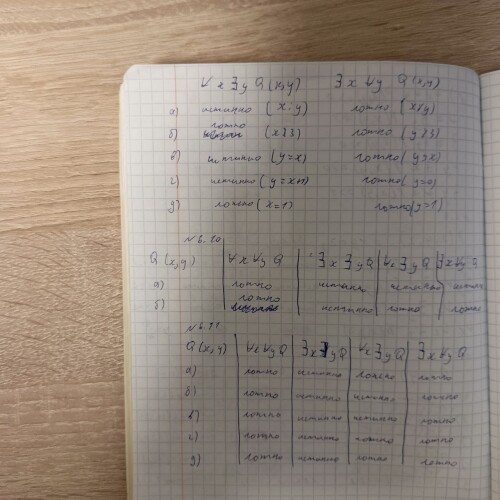 ∀x ∃y Q(x,y) ∃x ∀y Q(x,y)
а) истинно (x=y) ложно (x≠y)
ложно
б) (x≥3) ложно (y≥3)
в) истинно (y=x) ложно (y>x)
г) истинно (y=x+1) ложно (y=0)
д) ложно (x=1) ложно (y=1)
№6.20
Q(x,y) ∀x ∀y Q ∃x ∃y Q ∀x ∃y Q ∃x ∀y Q
а) ложно истинно истинно
ложно
б) истинно ложно ложно
№6.21
Q(x,y) ∀x ∀y Q ∃x ∃y Q ∀x ∃y Q ∃x ∀y Q
а) ложно истинно ложно ложно
б) ложно истинно истинно ложно
в) ложно истинно истинно ложно
г) ложно истинно ложно ложно
д) ложно истинно ложно ложно